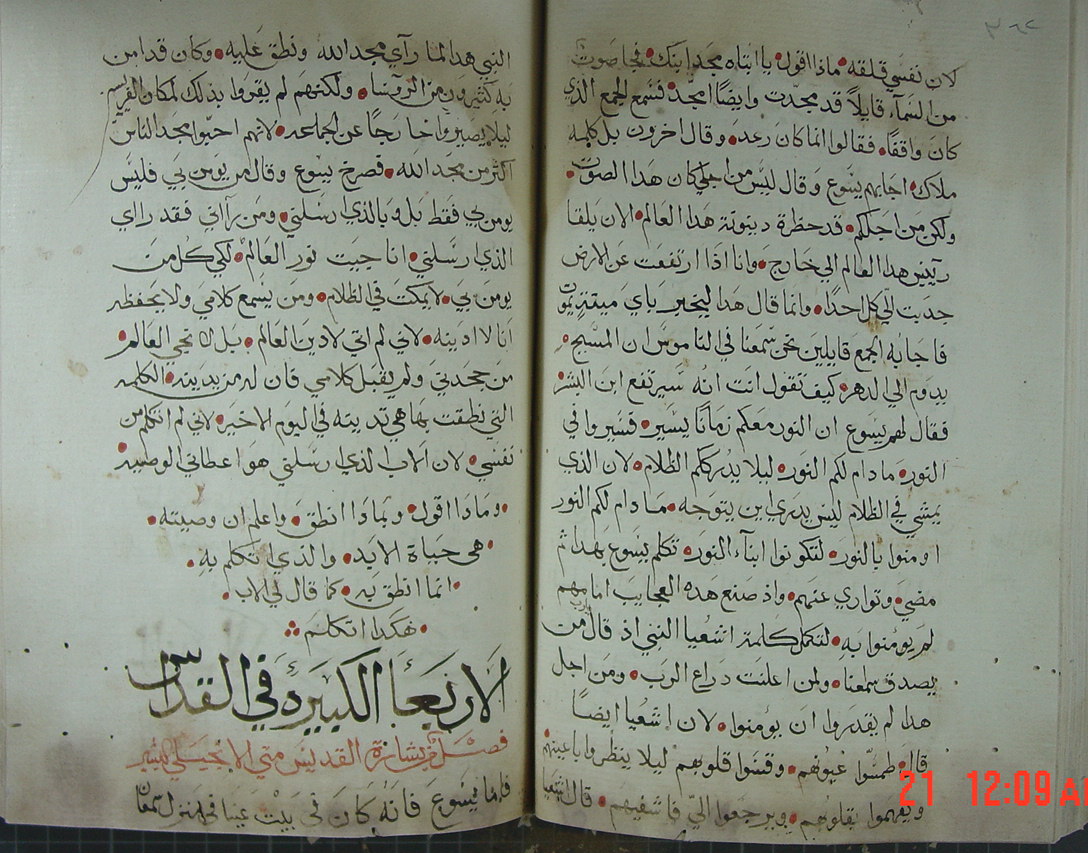 ٣٦٤
لان نفسي قلقه ماذا اقول يا ابتاه مجد ابنك فجا صوت
من السماء قايلاً قد مجدت وايضًا امجد فسمع الجمع الذي
كان واقفًا فقالوا انما كان رعد وقال اخرون بل كلمه
ملاك اجابهم يسوع وقال ليس من اجلي كان هذا الصوت
ولكن من اجلكم قد حظرة دينونة هذا العالم الان يلقا
رييس هذا العالم الي خارج وانا اذا ارتفعت عن الارض
جدبت الي كل احدا وانما قال هذا ليخبر باي ميتة يموت
فاجابه الجمع قايلين نحن سمعنا في الناموس ان المسيح
يدوم الي الدهر كيف تقول انت انه سيرتفع ابن البشر
فقال لهم يسوع ان النور معكم زمانًا يسير فسيروا في
النور ما دام لكم النور ليلا يدرككم الظلام لان الذي
يمشي في الظلام ليس يدري اين يتوجه ما دام لكم النور
اومنوا بالنور لتكونوا ابناء النور تكلم يسوع بهدا ثم
مضي وتواري عنهم واذ صنع هذه العجايب امامهم
لم يومنوا به لتكمل كلمة اشعيا النبي اذ قال من
يصدق سمعنا ولمن اعلنت دراع الرب ومن اجل
هدا لم يقدروا ان يومنوا لان اشعيا ايضًا
قال طمسوا عيونهم وقسوا قلوبهم ليلا ينظروا باعينهم
ويفهموا بقلوبهم ويرجعوا الي فاشفيهم قال اشعيا
النبي هدا لما رآي مجد الله ونطق عليه وكان قد امن
به كثيرون من الروسا ولكنهم لم يقروا بذلك لمكان الفريسيين
ليلا يصيروا خارجًا عن الجماعه لانهم احبوا مجد الناس
اكثر من مجد الله فصرخ يسوع وقال من يومن بي فليس
يومن بي فقط بل وبالذي ارسلني ومن رآني فقد راي
الذي ارسلني انا جيت نور العالم لكي كل من
يومن بي لا يمكت في الظلام ومن يسمع كلامي ولا يحفظه
انا لا ادينه لاني لم اتي لادين العالم بل لانجي العالم
من جحدني ولم يقبل كلامي فان له من يدينه الكلمه
التي نطقت بها هي تدينه في اليوم الاخير لاني لم اتكلم من
نفسي لان الاب الذي ارسلني هو اعطاني الوصية
وماذا اقول وبماذا انطق واعلم ان وصيته
هي حياة الابد والذي اتكلم به
انما انطق به كما قال لي الاب
هكدا اتكلم
الاربعا الكبيره في القداس
فصل من بشارة القديس متي الانجيلي البشير
فاما يسوع فانه كان في بيت عنيا في منزل سمعان
21 12:09 AM